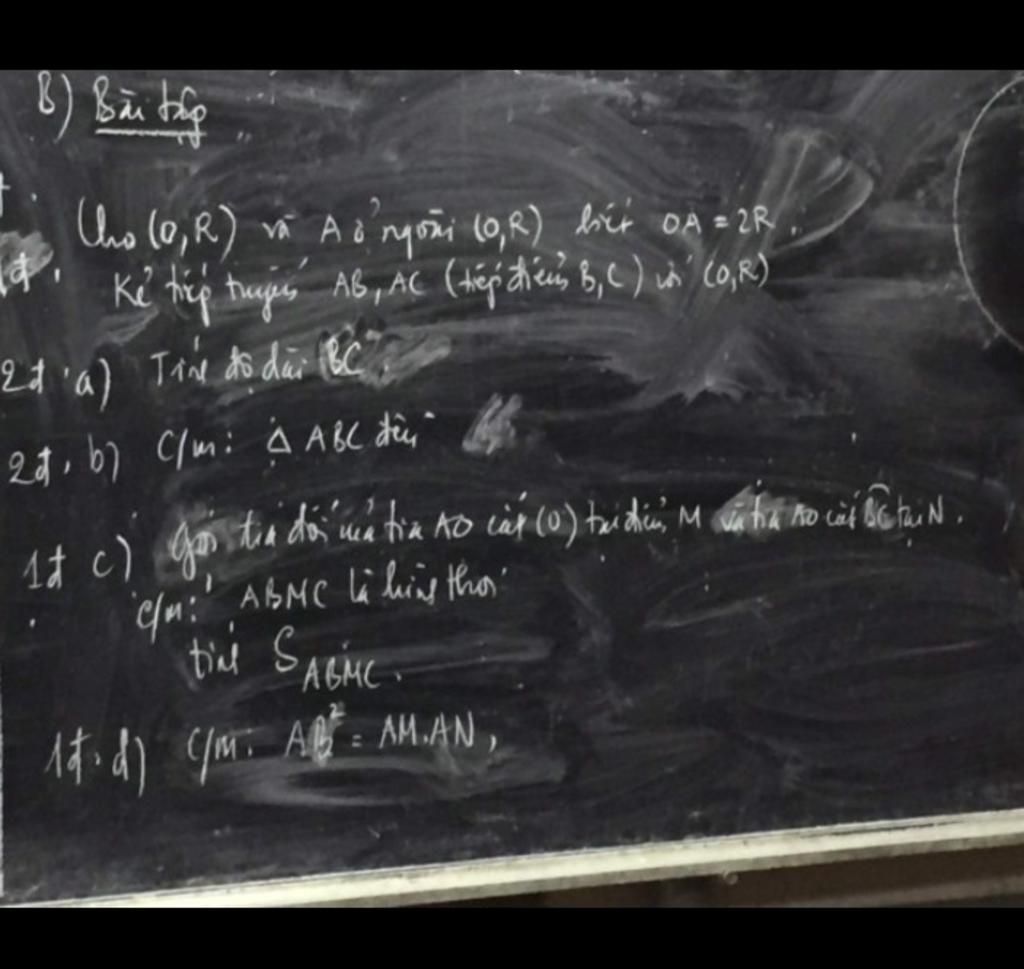 B) Bài tập
Cho (O,R) và A ở ngoài (O,R) biết OA = 2R.
1đ. Kẻ tiếp tuyến AB, AC (tiếp điểm B,C) với (O,R)
2đ. a) Tính độ dài BC.
2đ. b) C/m: Δ ABC đều
1đ c) Gọi tia đối của tia AO cắt (O) tại điểm M và tia AO cắt BC tại N.
C/m: ABMC là hình thoi
tính S ABMC.
1đ. d) C/m: AB² = AM.AN,